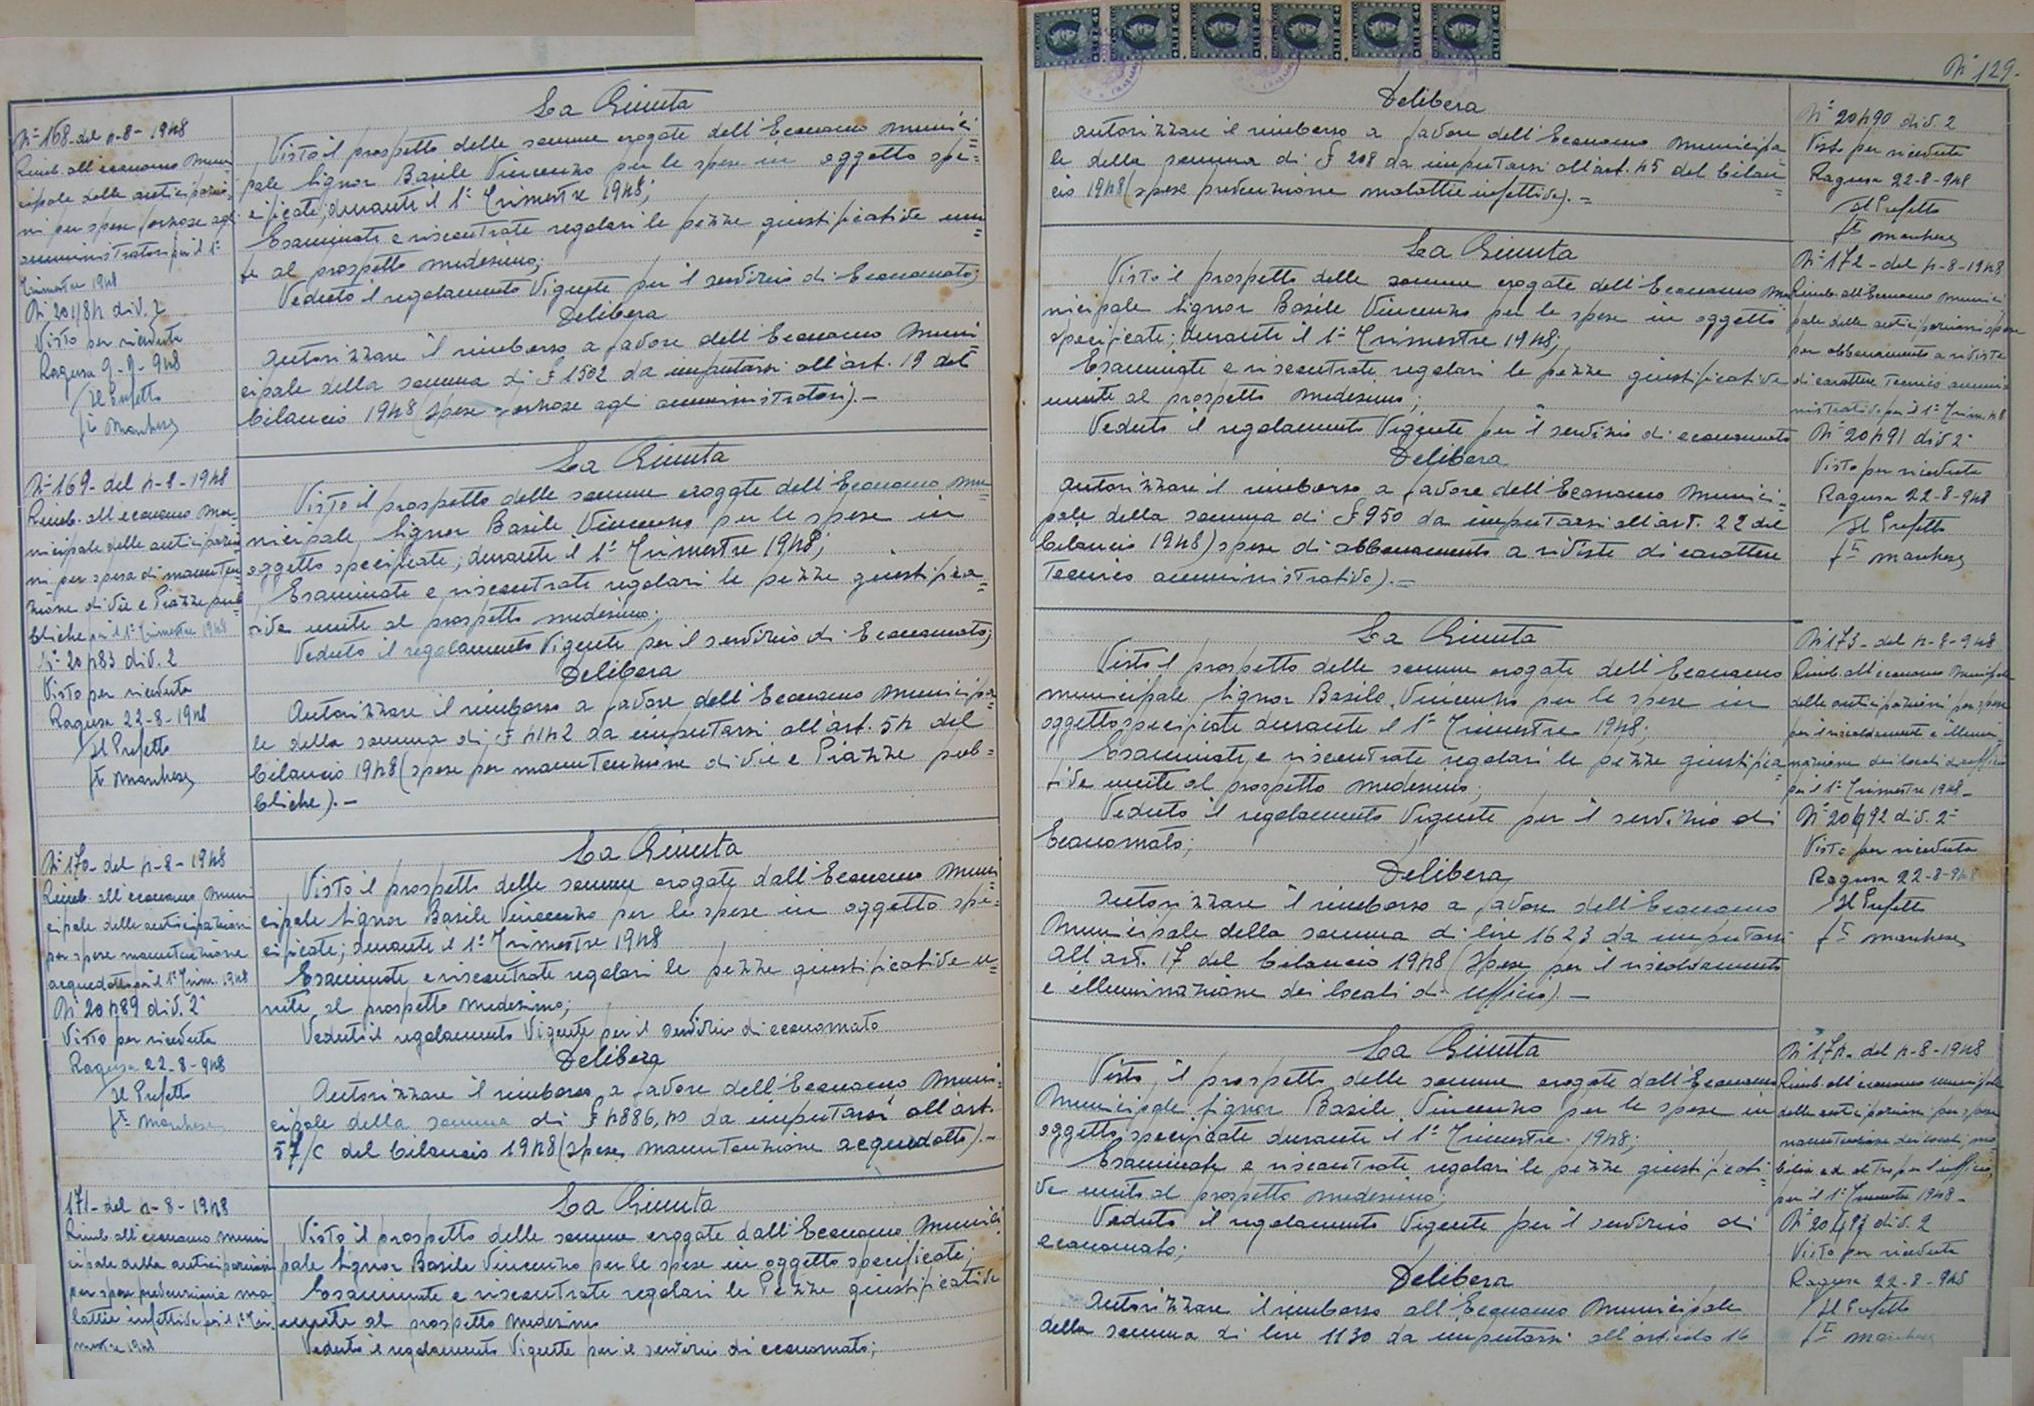 N° 168 del 4-8-1948
Rimb. all'economo Muni
cipale delle anticipazio
ni per spese forzose agli
amministratori per il 1°
Trimestre 1948
Visto per ricevuta
Ragusa 9-9-948
Il Prefetto
La Giunta
Visto il prospetto delle somme erogate dell'Economo Munici
pale Signor Basile Vincenzo per le spese in oggetto spe=
cificate; durante il 1° Trimestre 1948;
Esaminate e riscontrate regolari le pezze giustificative uni
te al prospetto medesimo;
Veduto il regolamento Vigente per il servizio di Economato;
Delibera
Autorizzare il rimborso a favore dell'Economo Muni
cipale della somma di £ 1502 da imputarsi all'art. 19 del
bilancio 1948 (Spese forzose agli amministratori).-
N° 169- del 4-8-1948
Rimb. all'economo Mu-
nicipale delle anticipazio
ni per spesa di manuten
zione di Vie e Piazze pub
bliche per il 1° Trimestre 1948
N° 20483 div. 2
Visto per ricevuta
Ragusa 22-8-1948
Il Prefetto
La Giunta
Visto il prospetto delle somme erogate dell'Economo Mu=
nicipale Signor Basile Vincenzo per le spese in
oggetto specificate; durante il 1° Trimestre 1948;
Esaminate e riscontrate regolari le pezze giustifica=
tive unite al prospetto medesimo;
Veduto il regolamento Vigente per il servizio di Economato;
Delibera
Autorizzare il rimborso a favore dell'Economo Municipa
le della somma di £ 4142 da imputarsi all'art. 54 del
bilancio 1948 (spese per manutenzione di vie e Piazze pub=
bliche).-
N° 170- del 4-8-1948
Rimb. all'economo Muni
cipale delle anticipazioni
per spese manutenzione
acquedotto per il 1° Trim. 1948
N° 20489 div. 2°
Visto per ricevuta
Ragusa 22-8-948
Il Prefetto
La Giunta
Visto il prospetto delle somme erogate dall'Economo Muni
cipale Signor Basile Vincenzo per le spese in oggetto spe=
cificate; durante il 1° Trimestre 1948
Esaminate e riscontrate regolari le pezze giustificative u=
nite al prospetto medesimo;
Veduto il regolamento Vigente per il servizio di economato
Delibera
Autorizzare il rimborso a favore dell'Economo Muni=
cipale della somma di £ 4886,40 da imputarsi all'art.
57/C del bilancio 1948 (Spese manutenzione acquedotto).-
171- del 4-8-1948
Rimb. all'economo Muni
cipale della anticipazioni
per spese prevenzione ma
lattie infettive per il 1° Tri
mestre 1948
La Giunta
Visto il prospetto delle somme erogate dall'Economo Munici
pale Signor Basile Vincenzo per le spese in oggetto specificate;
Esaminate e riscontrate regolari le Pezze giustificative
unite al prospetto medesimo
Veduto il regolamento Vigente per il servizio di economato;
N° 129-
Delibera
Autorizzare il rimborso a favore dell'Economo Municipa
le della somma di £ 208 da imputarsi all'art. 45 del bilan
cio 1948 (spese prevenzione malattie infettive).=
N° 20490 div. 2
Visto per ricevuta
Ragusa 22-8-948
Il Prefetto
La Giunta
Visto il prospetto delle somme erogate dell'Economo Mu
nicipale Signor Basile Vincenzo per le spese in oggetto
specificate; durante il 1° Trimestre 1948;
Esaminate e riscontrate regolari le pezze giustificative
unite al prospetto medesimo;
Veduto il regolamento Vigente per il servizio di economato
Delibera
Autorizzare il rimborso a favore dell'Economo Munici=
pale della somma di £ 950 da imputarsi all'art. 22 del
bilancio 1948) spese di abbonamento a riviste di carattere
Tecnico amministrativo).-
N° 172- del 4-8-1948
Rimb. all'Economo Munici
pale delle anticipazioni spese
per abbonamento a riviste
di carattere Tecnico ammi
nistrativo per il 1° Trim. 48
N° 20491 div 2°
Visto per ricevuta
Ragusa 22-8-948
Il Prefetto
La Giunta
Visto il prospetto delle somme erogate dell'Economo
Municipale Signor Basile Vincenzo per le spese in
oggetto specificate durante il 1° Trimestre 1948;
Esaminate e riscontrate regolari le pezze giustifica=
tive unite al prospetto medesimo;
Veduto il regolamento Vigente per il servizio di
Economato;
Delibera
Autorizzare il rimborso a favore dell'Economo
Municipale della somma di lire 1623 da imputarsi
all'art. 17 del bilancio 1948 (Spese per il riscaldamento
e illuminazione dei locali di ufficio).-
N° 173- del 4-8-948
Rimb. all'economo Municipale
delle anticipazioni per spese
per riscaldamento e illumi
nazione dei locali d'ufficio
per il 1° Trimestre 1948-
N° 20492 div. 2°
Visto per ricevuta
Ragusa 22-8-948
Il Prefetto
La Giunta
Visto, il prospetto delle somme erogate dall'Economo
Municipale Signor Basile Vincenzo per le spese in
oggetto specificate durante il 1° Trimestre 1948;
Esaminate e riscontrate regolari le pezze giustificati=
ve unite al prospetto medesimo;
Veduto il regolamento Vigente per il servizio di
economato;
Delibera
Autorizzare il rimborso all'Economo Municipale
della somma di lire 1130 da imputarsi all'articolo 16
N° 174- del 4-8-1948
Rimb. all'economo municipale
delle anticipazioni per spese
manutenzione dei locali mo
bilia ed altro per l'ufficio,
per il 1° Trimestre 1948-
N° 20493 div. 2
Visto per ricevuta
Ragusa 22-8-948
Il Prefetto